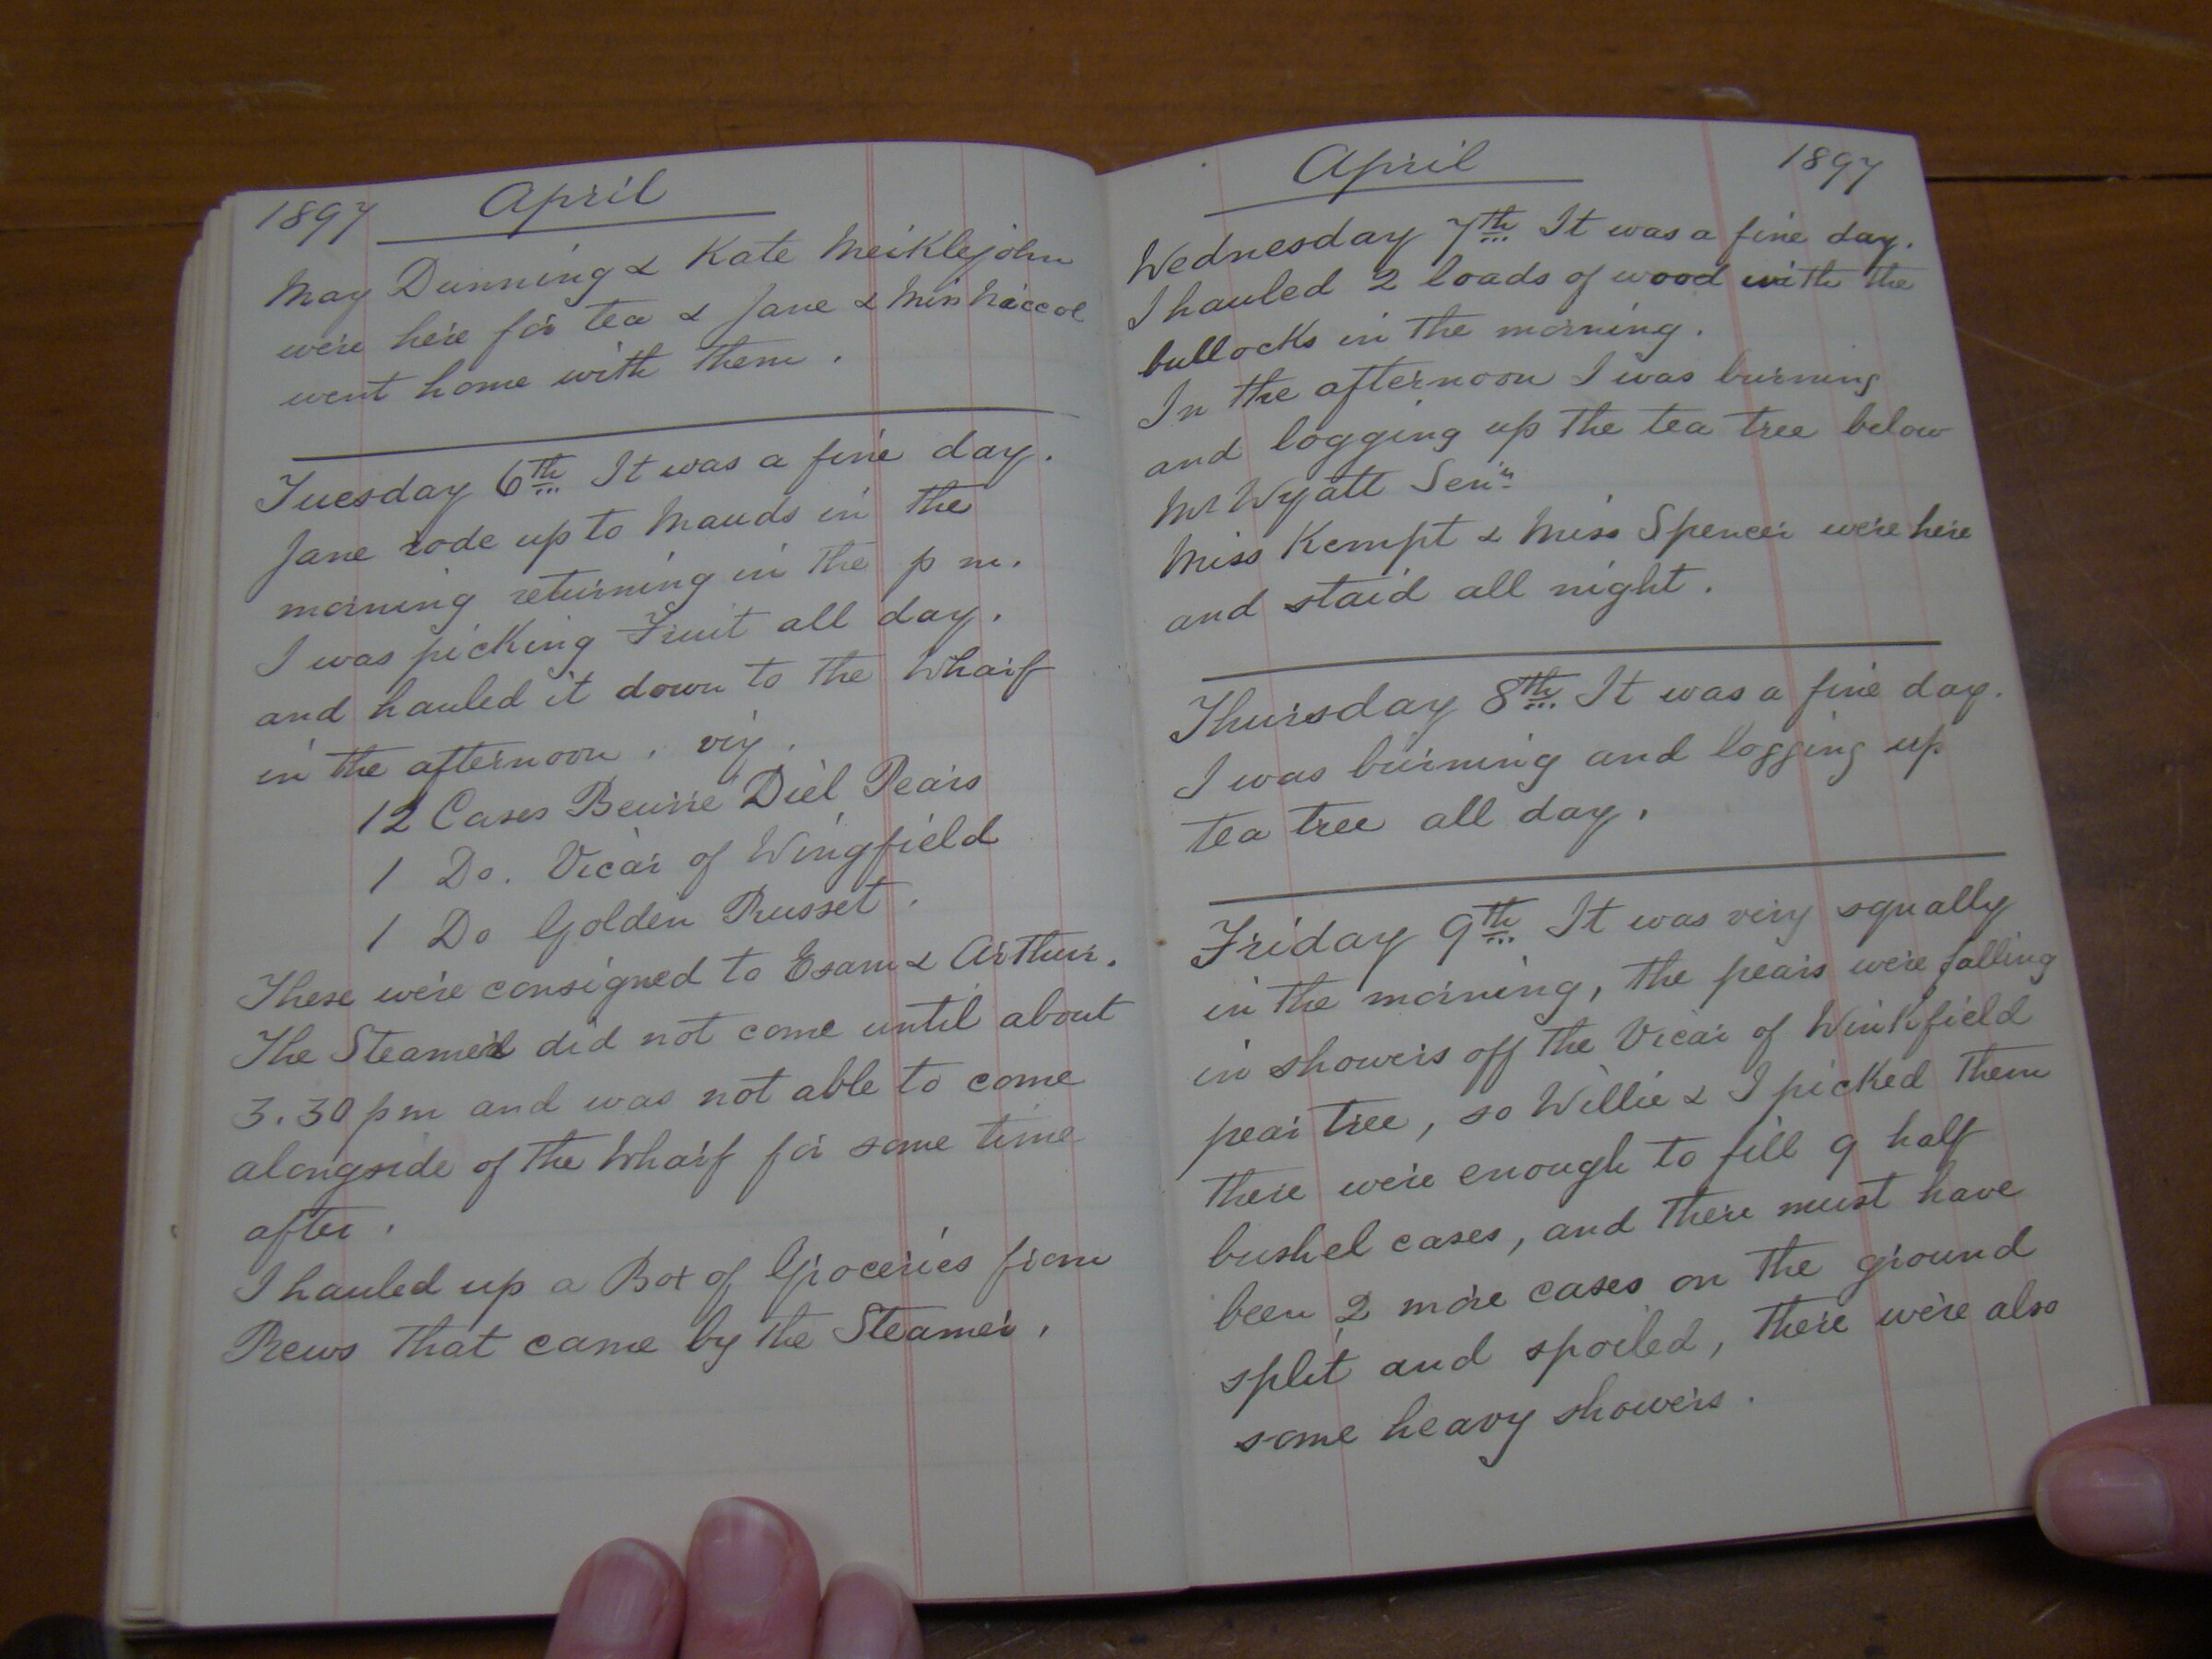 1897 April
May Dunning & Kate Meiklejohn
were here for tea & Jane & Miss
went home with them.
Tuesday 6th It was a fine day.
Jane rode up to Mauds in the
morning returning in the p m.
I was picking Fruit all day.
and hauled it down to the Wharf
in the afternoon. viz.
12 Cases Beurre Diel Pears
1 Do. Vicar of Wingfield
1 Do Golden Russet.
These were consigned to Esam & Arthur.
The Steamer did not come until about
3.30 pm and was not able to come
alongside of the Wharf for some time
after.
I hauled up a Box of Groceries from
Rews that came by the Steamer.
April 1897
Wednesday 7th It was a fine day.
I hauled 2 loads of wood with the
bullocks in the morning.
In the afternoon I was burning
and logging up the tea tree below
Mr Wyatt Senr
Miss Kempt & Miss Spencer were here
and staid all night.
Thursday 8th It was a fine day.
I was burning and logging up
tea tree all day.
Friday 9th It was very squally
in the morning, the pears were falling
in showers off the Vicar of Winkfield
pear tree, so Willie & I picked them
there were enough to fill 9 half
bushel cases, and there must have
been 2 more cases on the ground
split and spoiled, there were also
some heavy showers.